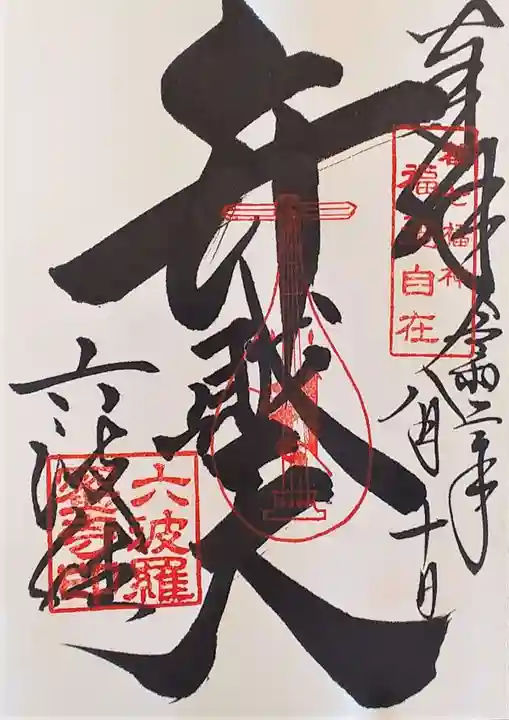 奉拝
令和二年
八月十日
都七福神
福寿自在
弁財天
六波羅
六波羅
蜜寺印